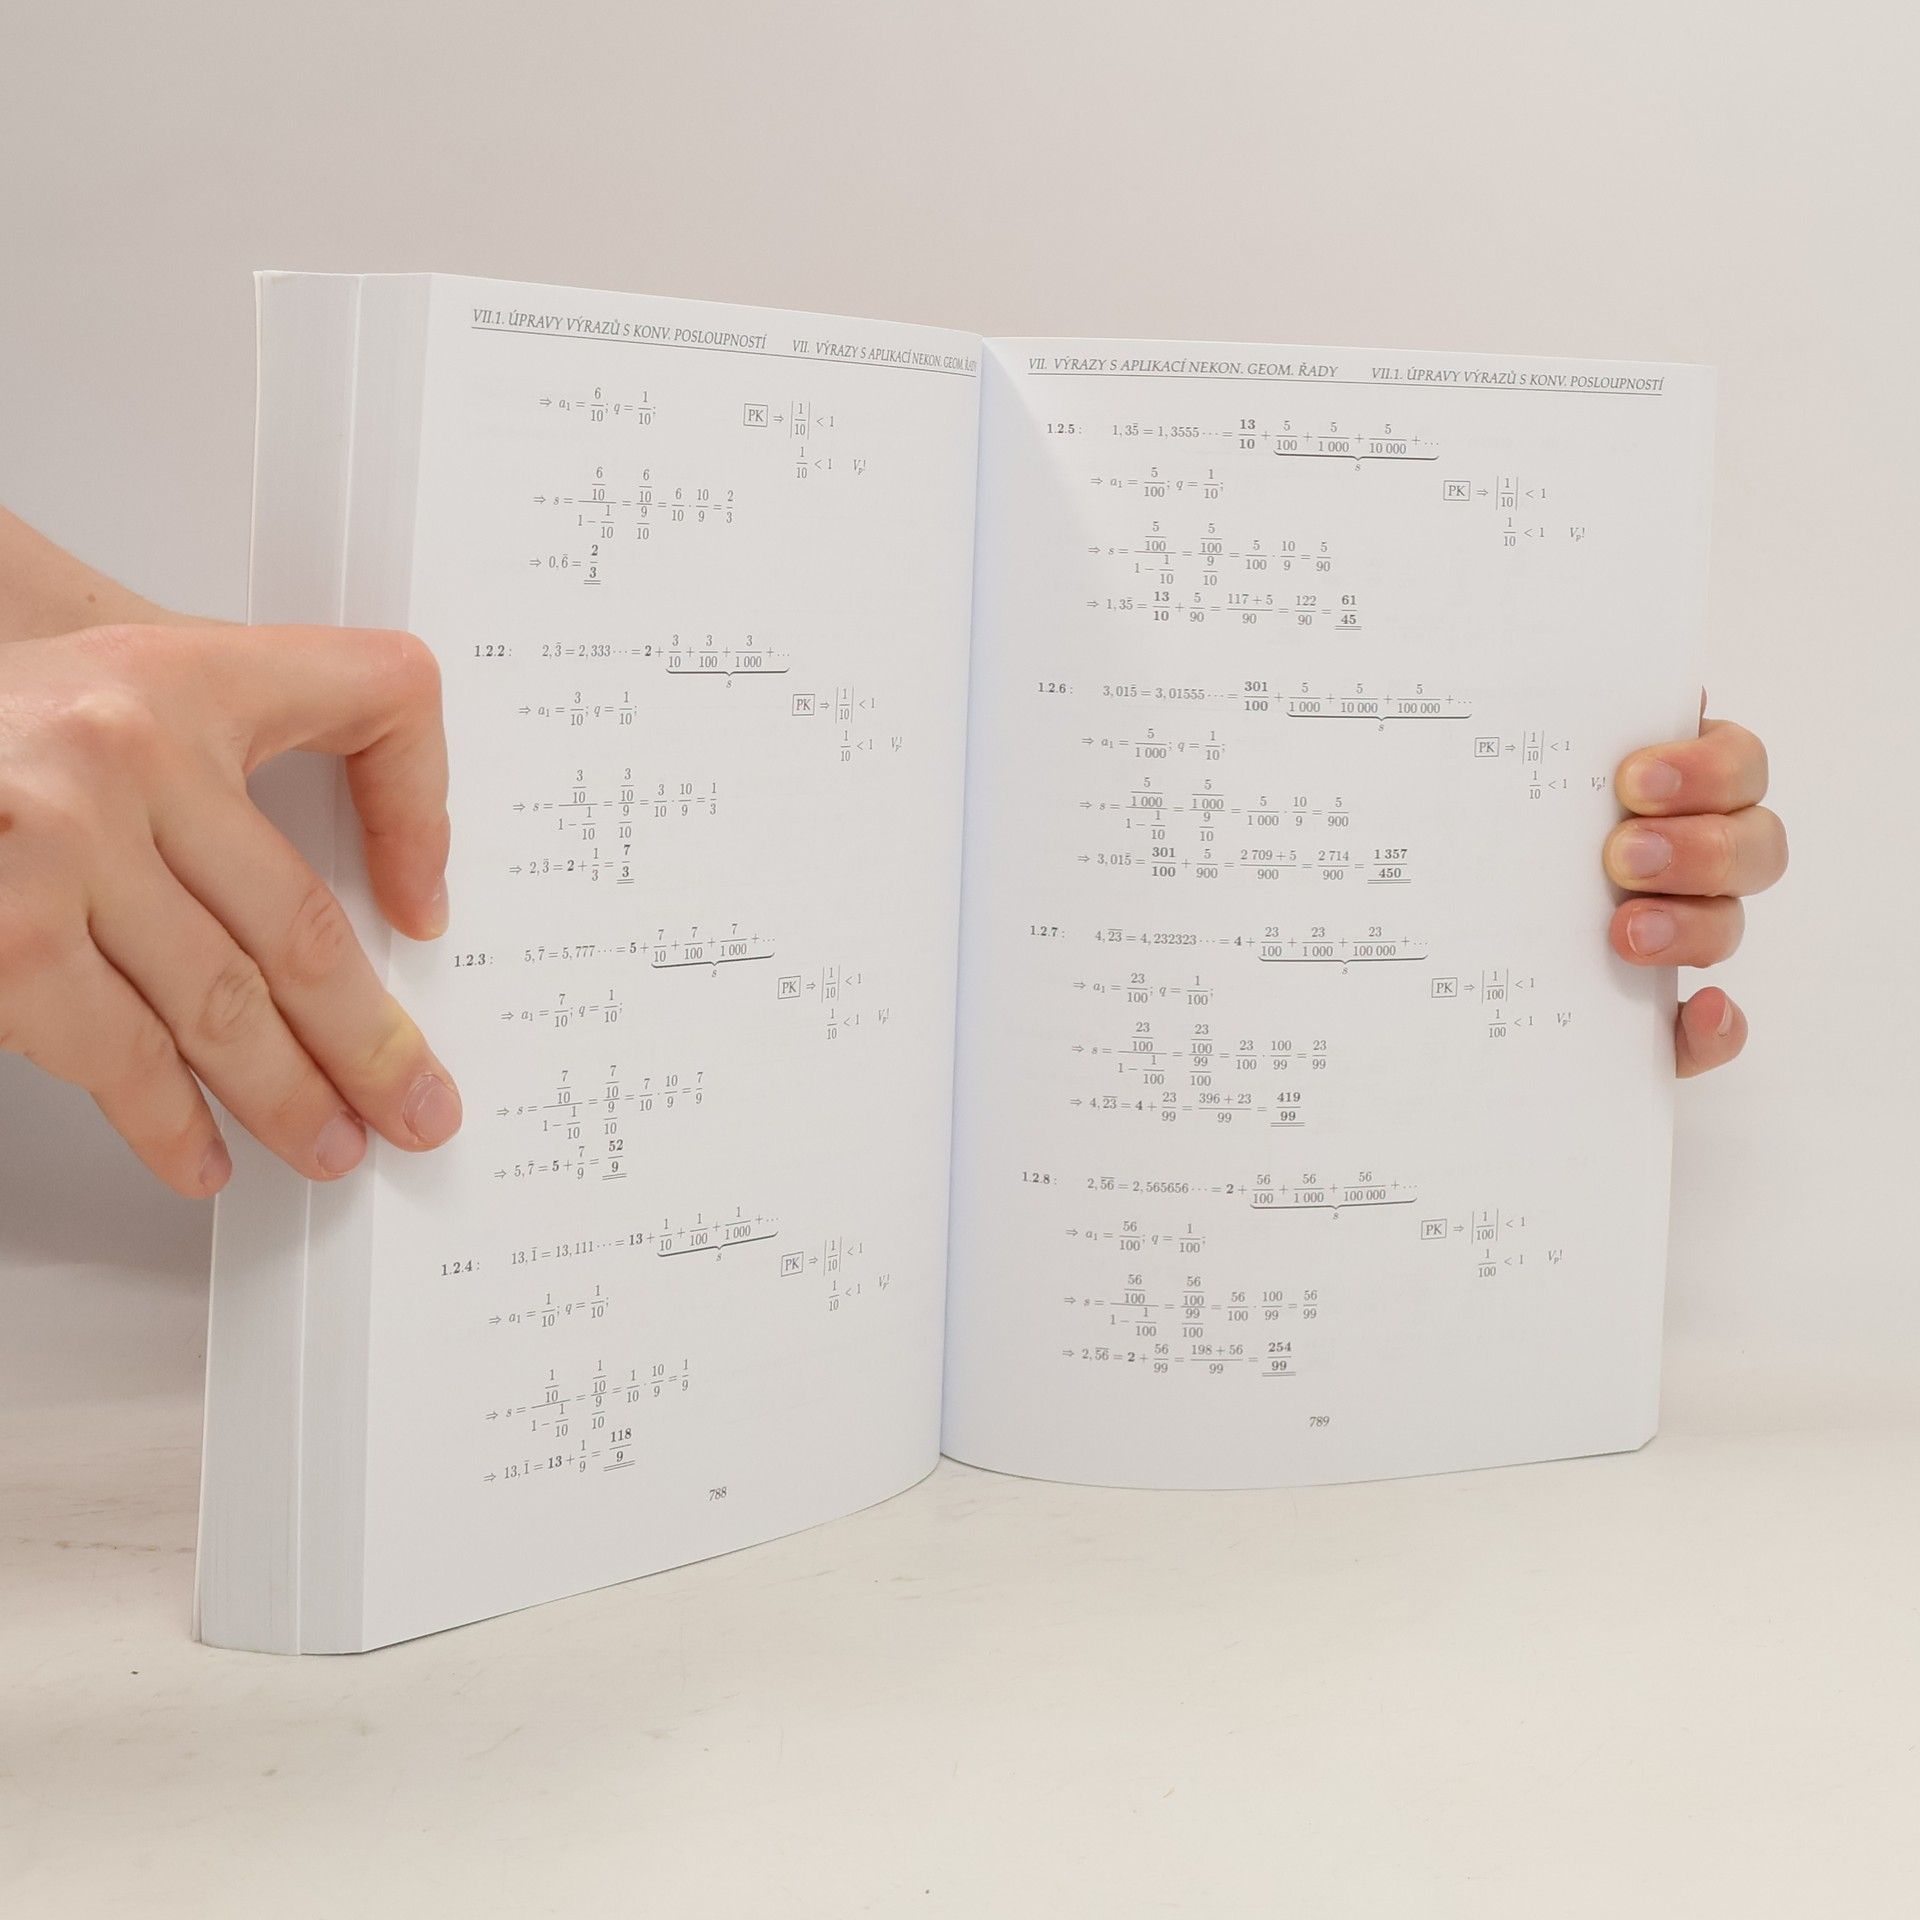 VII.1. ÚPRAVY VÝRAZŮ S KONV. POSLOUPNOSTÍ VII. VÝRAZY S APLIKACÍ NEKON. GEOM. ŘADY
⇒ a₁ = 6/10; q = 1/10; PK ⇒ |1/10| < 1
1/10 < 1 Vₚ!
⇒ s = (6/10)/(1 − 1/10) = (6/10)/(9/10) = 6/10 · 10/9 = 2/3
⇒ 0,6̄ = 2/3
1.2.2 : 2,3̄ = 2,333··· = 2 + 3/10 + 3/100 + 3/1 000 + ...
s
⇒ a₁ = 3/10; q = 1/10; PK ⇒ |1/10| < 1
1/10 < 1 Vₚ!
⇒ s = (3/10)/(1 − 1/10) = (3/10)/(9/10) = 3/10 · 10/9 = 1/3
⇒ 2,3̄ = 2 + 1/3 = 7/3
1.2.3 : 5,7̄ = 5,777··· = 5 + 7/10 + 7/100 + 7/1 000 + ...
s
⇒ a₁ = 7/10; q = 1/10; PK ⇒ |1/10| < 1
1/10 < 1 Vₚ!
⇒ s = (7/10)/(1 − 1/10) = (7/10)/(9/10) = 7/10 · 10/9 = 7/9
⇒ 5,7̄ = 5 + 7/9 = 52/9
1.2.4 : 13,1̄ = 13,111··· = 13 + 1/10 + 1/100 + 1/1 000 + ...
s
⇒ a₁ = 1/10; q = 1/10; PK ⇒ |1/10| < 1
1/10 < 1 Vₚ!
⇒ s = (1/10)/(1 − 1/10) = (1/10)/(9/10) = 1/10 · 10/9 = 1/9
⇒ 13,1̄ = 13 + 1/9 = 118/9
788
VII. VÝRAZY S APLIKACÍ NEKON. GEOM. ŘADY VII.1. ÚPRAVY VÝRAZŮ S KONV. POSLOUPNOSTÍ
1.2.5 : 1,35̄ = 1,3555··· = 13/10 + 5/100 + 5/1 000 + 5/10 000 + ...
s
⇒ a₁ = 5/100; q = 1/10; PK ⇒ |1/10| < 1
1/10 < 1 Vₚ!
⇒ s = (5/100)/(1 − 1/10) = (5/100)/(9/10) = 5/100 · 10/9 = 5/90
⇒ 1,35̄ = 13/10 + 5/90 = (117 + 5)/90 = 122/90 = 61/45
1.2.6 : 3,015̄ = 3,01555··· = 301/100 + 5/1 000 + 5/10 000 + 5/100 000 + ...
s
⇒ a₁ = 5/1 000; q = 1/10; PK ⇒ |1/10| < 1
1/10 < 1 Vₚ!
⇒ s = (5/1 000)/(1 − 1/10) = (5/1 000)/(9/10) = 5/1 000 · 10/9 = 5/900
⇒ 3,015̄ = 301/100 + 5/900 = (2 709 + 5)/900 = 2 714/900 = 1 357/450
1.2.7 : 4,2̄3̄ = 4,232323··· = 4 + 23/100 + 23/1 000 + 23/100 000 + ...
s
⇒ a₁ = 23/100; q = 1/100; PK ⇒ |1/100| < 1
1/100 < 1 Vₚ!
⇒ s = (23/100)/(1 − 1/100) = (23/100)/(99/100) = 23/100 · 100/99 = 23/99
⇒ 4,2̄3̄ = 4 + 23/99 = (396 + 23)/99 = 419/99
1.2.8 : 2,5̄6̄ = 2,565656··· = 2 + 56/100 + 56/1 000 + 56/100 000 + ...
s
⇒ a₁ = 56/100; q = 1/100; PK ⇒ |1/100| < 1
1/100 < 1 Vₚ!
⇒ s = (56/100)/(1 − 1/100) = (56/100)/(99/100) = 56/100 · 100/99 = 56/99
⇒ 2,5̄6̄ = 2 + 56/99 = (198 + 56)/99 = 254/99
789